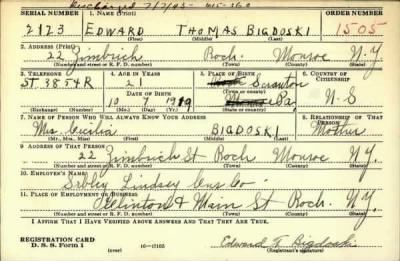 Discharged 7/7/43
SERIAL NUMBER 1. NAME (Print) ORDER NUMBER
2123 EDWARD THOMAS BIGDOSKI 1505
(First) (Middle) (Last)
2. ADDRESS (Print)
22 Zimbrich Roch. Monroe N.Y.
(Number and street or R. F. D. number) (Town) (County) (State)
3. TELEPHONE 4. AGE IN YEARS 5. PLACE OF BIRTH 6. COUNTRY OF CITIZENSHIP
ST. 3854R 21 Scranton
DATE OF BIRTH (Town or county)
10 7 1919 Pa. U.S
(Exchange) (Number) (Mo.) (Day) (Yr.) (State or country)
7. NAME OF PERSON WHO WILL ALWAYS KNOW YOUR ADDRESS 8. RELATIONSHIP OF THAT PERSON
Mrs. Cicilia BIGDOSKI Mother
(Mr., Mrs., Miss) (First) (Middle) (Last)
9. ADDRESS OF THAT PERSON
22 Zimbrich St Roch Monroe N.Y.
(Number and street or R. F. D. number) (Town) (County) (State)
10. EMPLOYER'S NAME
Sibley Lindsey Curr Co
11. PLACE OF EMPLOYMENT OR BUSINESS
Clinton & Main St Roch. N.Y.
(Number and street or R. F. D. number) (Town) (County) (State)
I AFFIRM THAT I HAVE VERIFIED ABOVE ANSWERS AND THAT THEY ARE TRUE.
REGISTRATION CARD
D. S. S. Form 1 (over) 16—17105 Edward T. Bigdoski
(Registrant's signature)